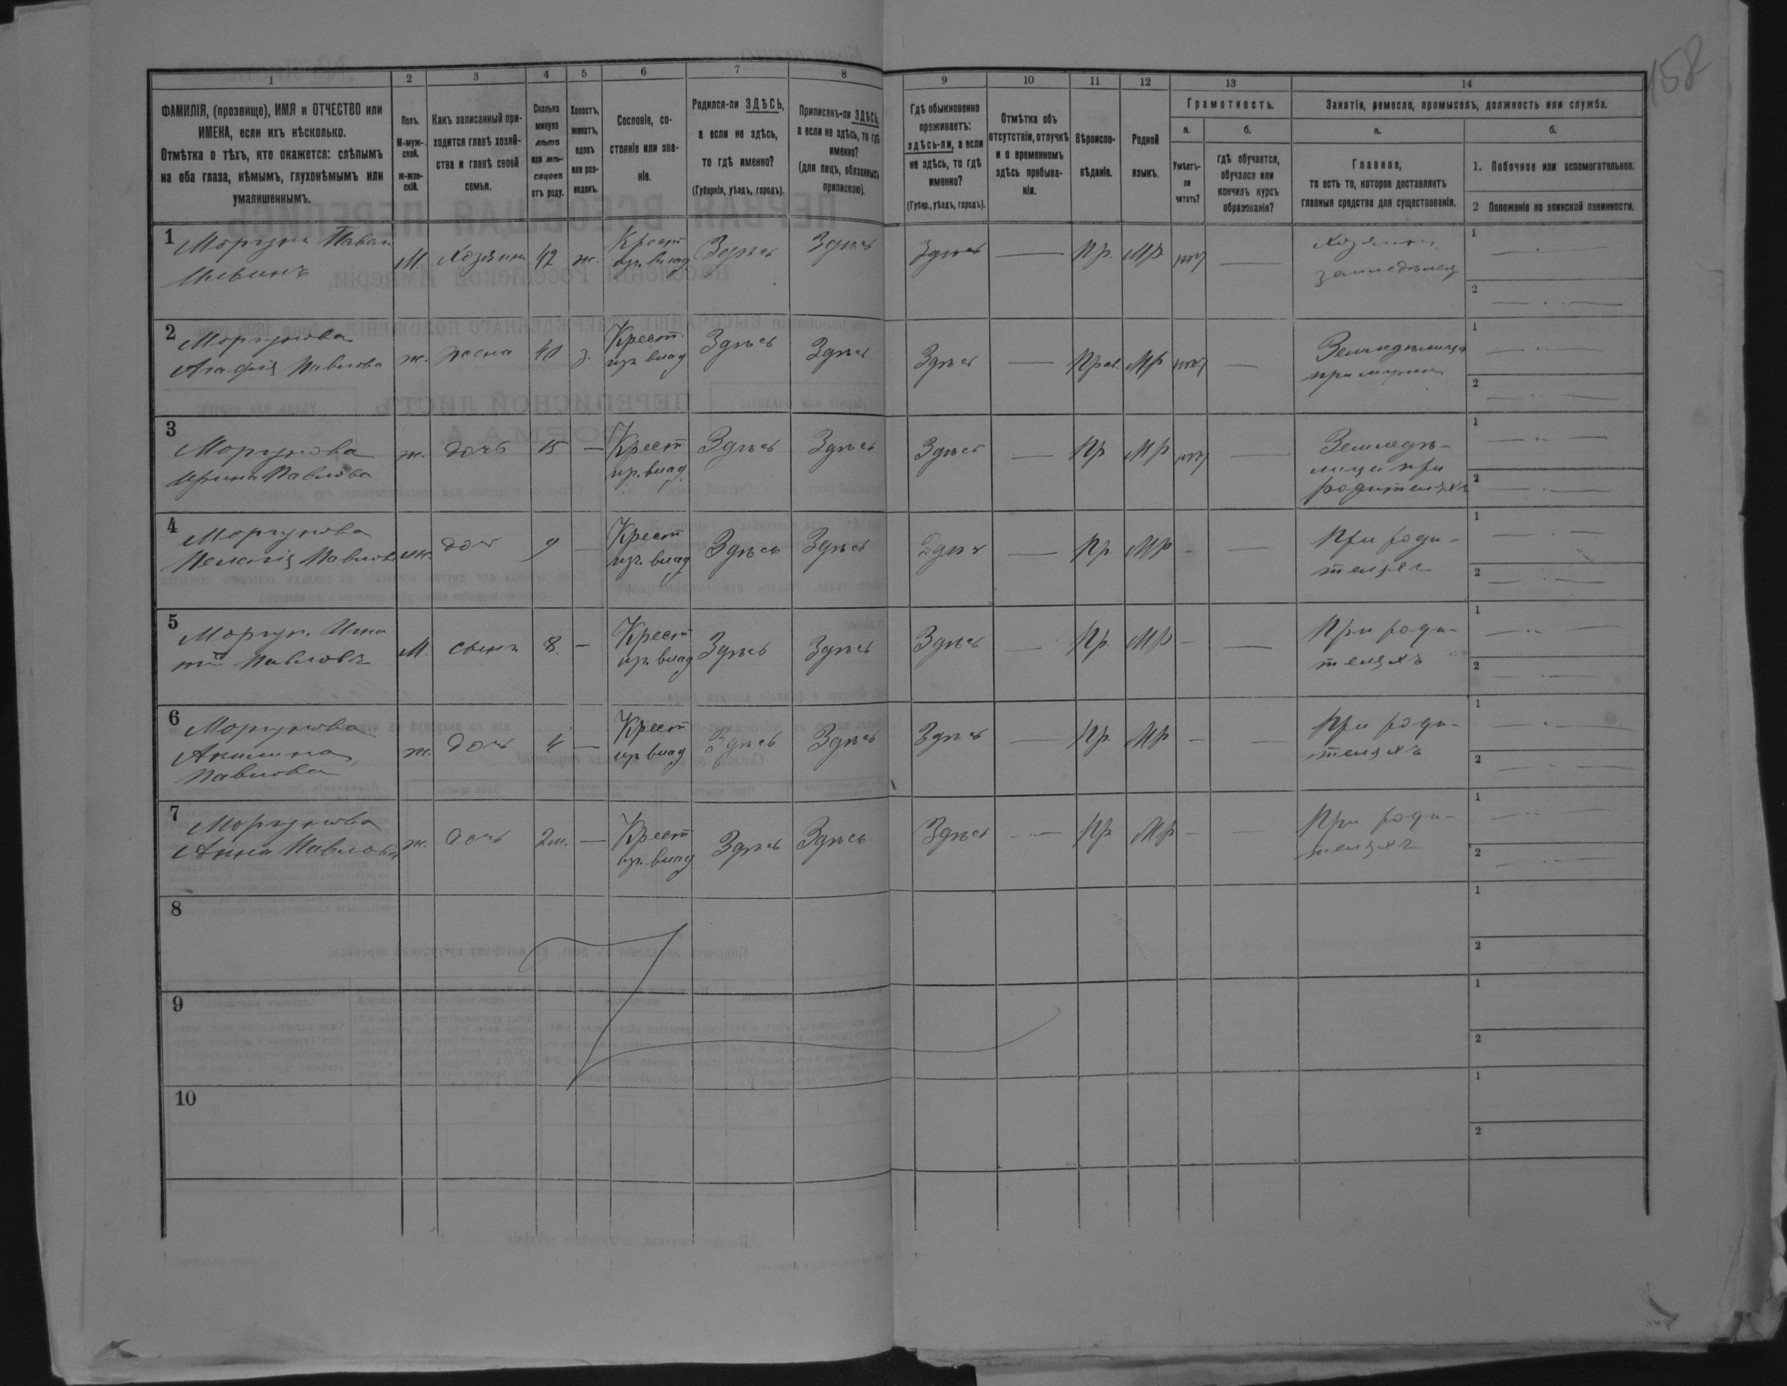 158
1 2 3 4 5 6 7 8 9 10 11 12 13 14
ФАМИЛІЯ, (прозвище), ИМЯ и ОТЧЕСТВО или
ИМЕНА, если ихъ нѣсколько.
Отмѣтка о тѣхъ, кто окажется: слѣпымъ
на оба глаза, нѣмымъ, глухонѣмымъ или
умалишеннымъ.
Полъ.
М-муж-
ской.
ж-жен-
скій.
Какъ записанный при-
ходится главѣ хозяй-
ства и главѣ своей
семьи.
Сколько
минуло
лѣтъ
или мѣ-
сяцевъ
отъ роду.
Холостъ,
женатъ,
вдовъ
или раз-
веденъ.
Сословіе, со-
стояніе или зва-
ніе.
Родился-ли ЗДѢСЬ,
а если не здѣсь,
то гдѣ именно?
(Губернія, уѣздъ, городъ).
Приписанъ-ли ЗДѢСЬ,
а если не здѣсь, то гдѣ
именно?
(для лицъ, обязанныхъ
припискою).
Гдѣ обыкновенно
проживаетъ:
здѣсь-ли, а если
не здѣсь, то гдѣ
именно?
(Губер., уѣздъ, городъ).
Отмѣтка объ
отсутствіи, отлучкѣ
и о временномъ
здѣсь пребыва-
ніи.
Вѣроиспо-
вѣданіе.
Родной
языкъ.
Грамотность.
а.
Умѣетъ-
ли
читать?
б.
гдѣ обучается,
обучался или
кончилъ курсъ
образованія?
Занятіе, ремесло, промыселъ, должность или служба.
а.
Главное,
то есть то, которое доставляетъ
главныя средства для существованія.
б.
1. Побочное или вспомогательное.
2 Положеніе по воинской повинности.
1
Моргунъ Павел
М. Хозяинъ 42 ж. Крест Здѣсь Здѣсь Здѣсь — Пр. Мр — Хозяинъ
1 — . —
2 — . —
2
Моргунова
Агафія Павлова
ж. жена 40 з. Крест Здѣсь Здѣсь Здѣсь — Прав. Мр — Земледѣлица
при мужѣ
1 — . —
2 — . —
3
Моргунова
Ирина Павлова
ж. дочь 15 — Крест Здѣсь Здѣсь Здѣсь — Пр Мр — Земледѣ-
лица при
родителяхъ
1 — . —
2 — . —
4
Моргунова
Пелагія Павлова
ж. доч 9 — Крест Здѣсь Здѣсь Здѣсь — Пр Мр - — При роди-
теляхъ
1 — . —
2 — . —
5
Моргун. Игна
тій Павловъ
М. сынъ 8. — Крест Здѣсь Здѣсь Здѣсь — Пр. Мр - — При роди-
теляхъ
1 — . —
2 — . —
6
Моргунова
Акилина
Павлова
ж. дочь 4 — Крест Здѣсь Здѣсь Здѣсь — Пр Мр - — При роди-
теляхъ
1 — . —
2 — . —
7
Моргунова
Анна Павлова
ж. дочь 2м. — Крест Здѣсь Здѣсь Здѣсь — Пр Мр - — При роди-
теляхъ
1 — . —
2 — . —
8
1
2
9
1
2
10
1
2